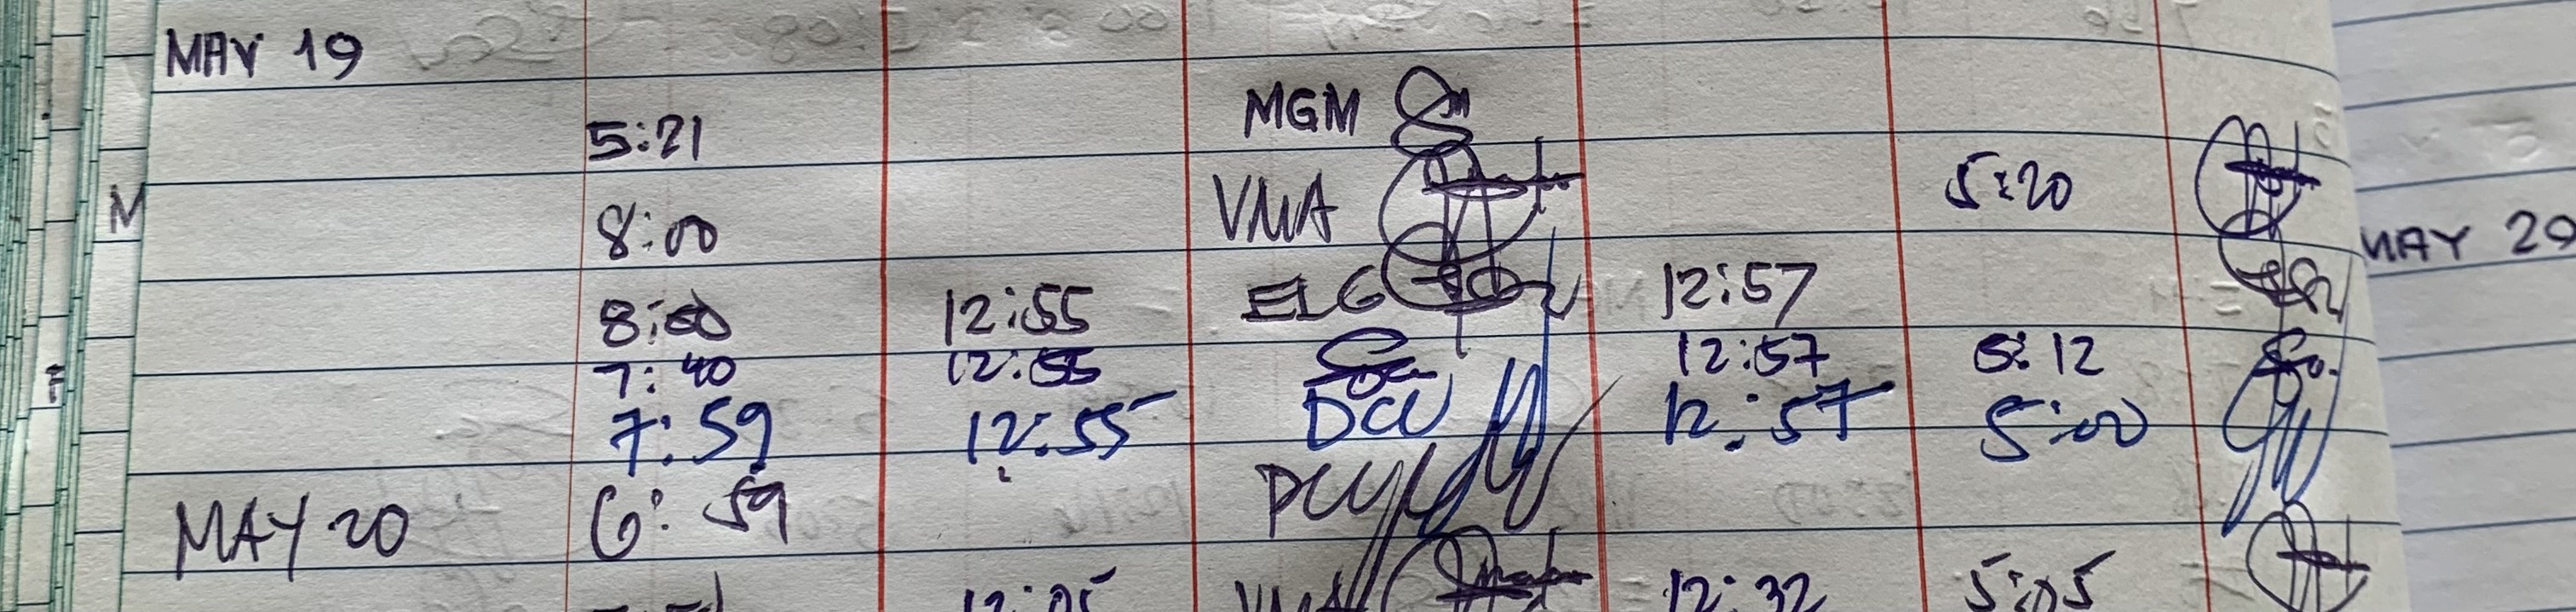 MAY 19
5:21 MGM
8:00 VMA 5:20
8:00 12:55 ELG 12:57
7:40 12:55 12:57 5:12
7:59 12:55 DCU 12:57 5:00
MAY 20 6:59 DCU
12:05 VMA 12:32 5:05
MAY 29